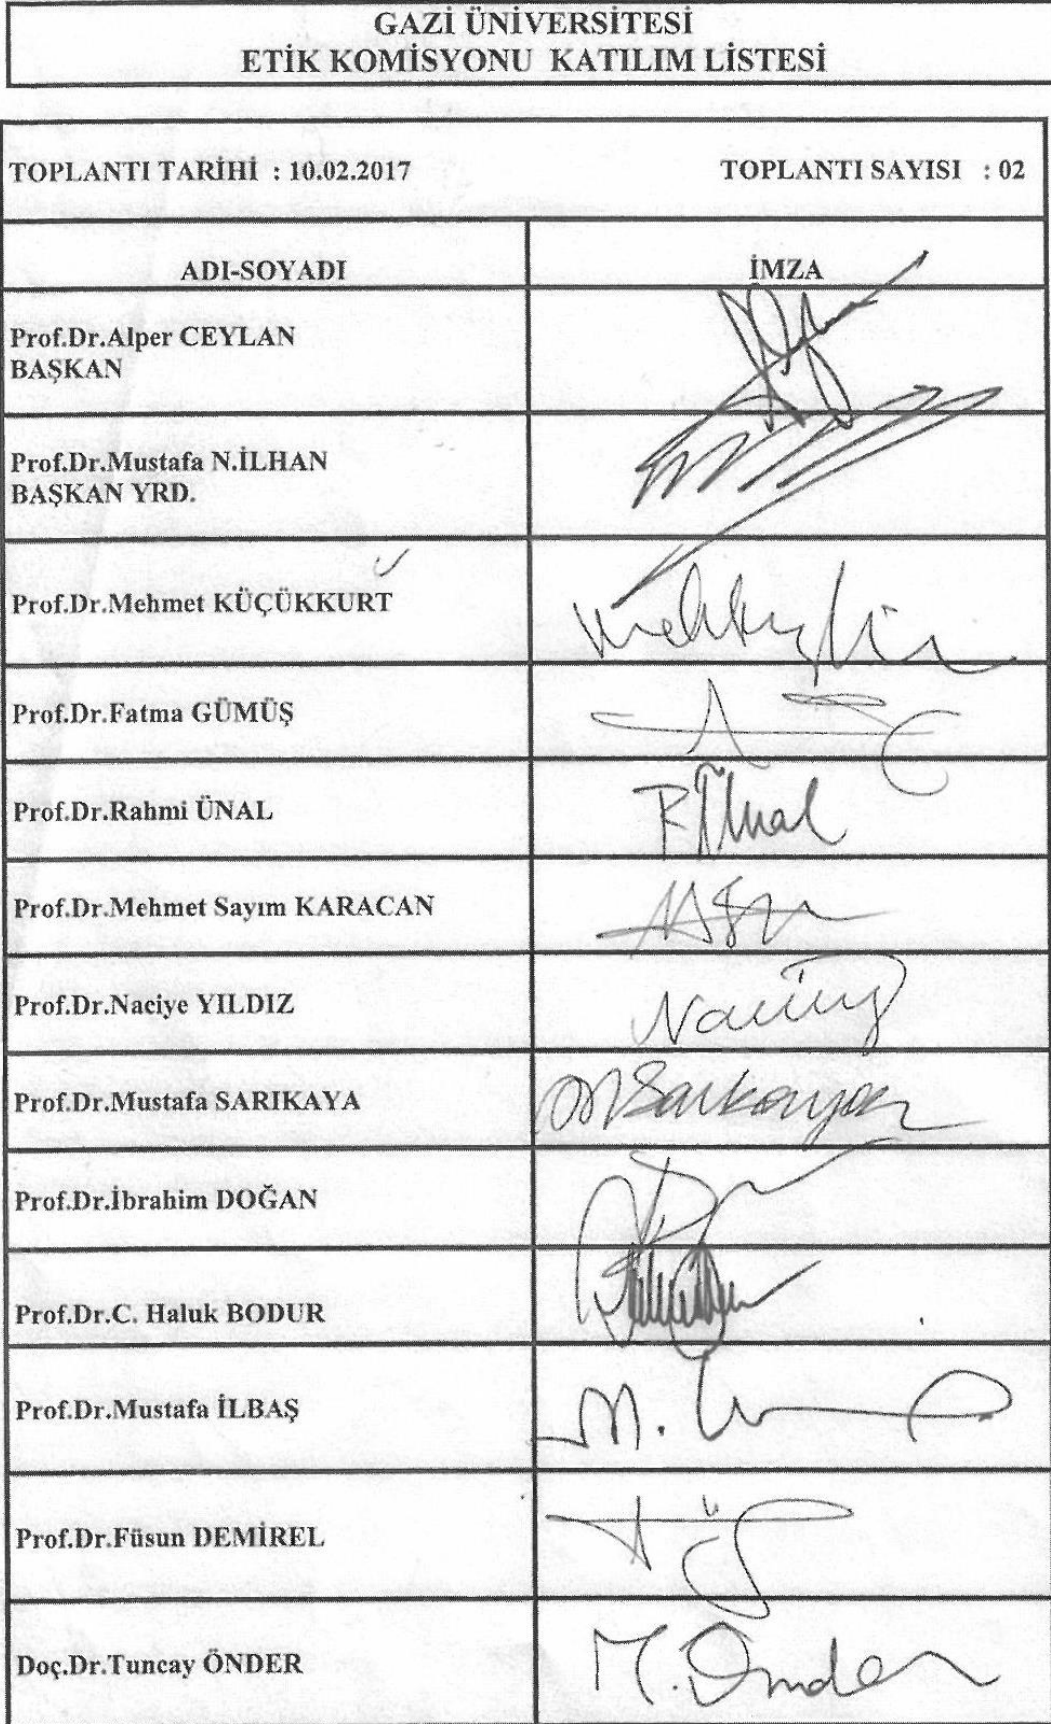 GAZİ ÜNİVERSİTESİ
ETİK KOMİSYONU KATILIM LİSTESİ
TOPLANTI TARİHİ : 10.02.2017 TOPLANTI SAYISI : 02
ADI-SOYADI İMZA
Prof.Dr.Alper CEYLAN
BAŞKAN
Prof.Dr.Mustafa N.İLHAN
BAŞKAN YRD.
Prof.Dr.Mehmet KÜÇÜKKURT
Prof.Dr.Fatma GÜMÜŞ
Prof.Dr.Rahmi ÜNAL R Ünal
Prof.Dr.Mehmet Sayım KARACAN
Prof.Dr.Naciye YILDIZ
Prof.Dr.Mustafa SARIKAYA M Sarıkaya
Prof.Dr.İbrahim DOĞAN
Prof.Dr.C. Haluk BODUR
Prof.Dr.Mustafa İLBAŞ M.
Prof.Dr.Füsun DEMİREL
Doç.Dr.Tuncay ÖNDER M. Önder